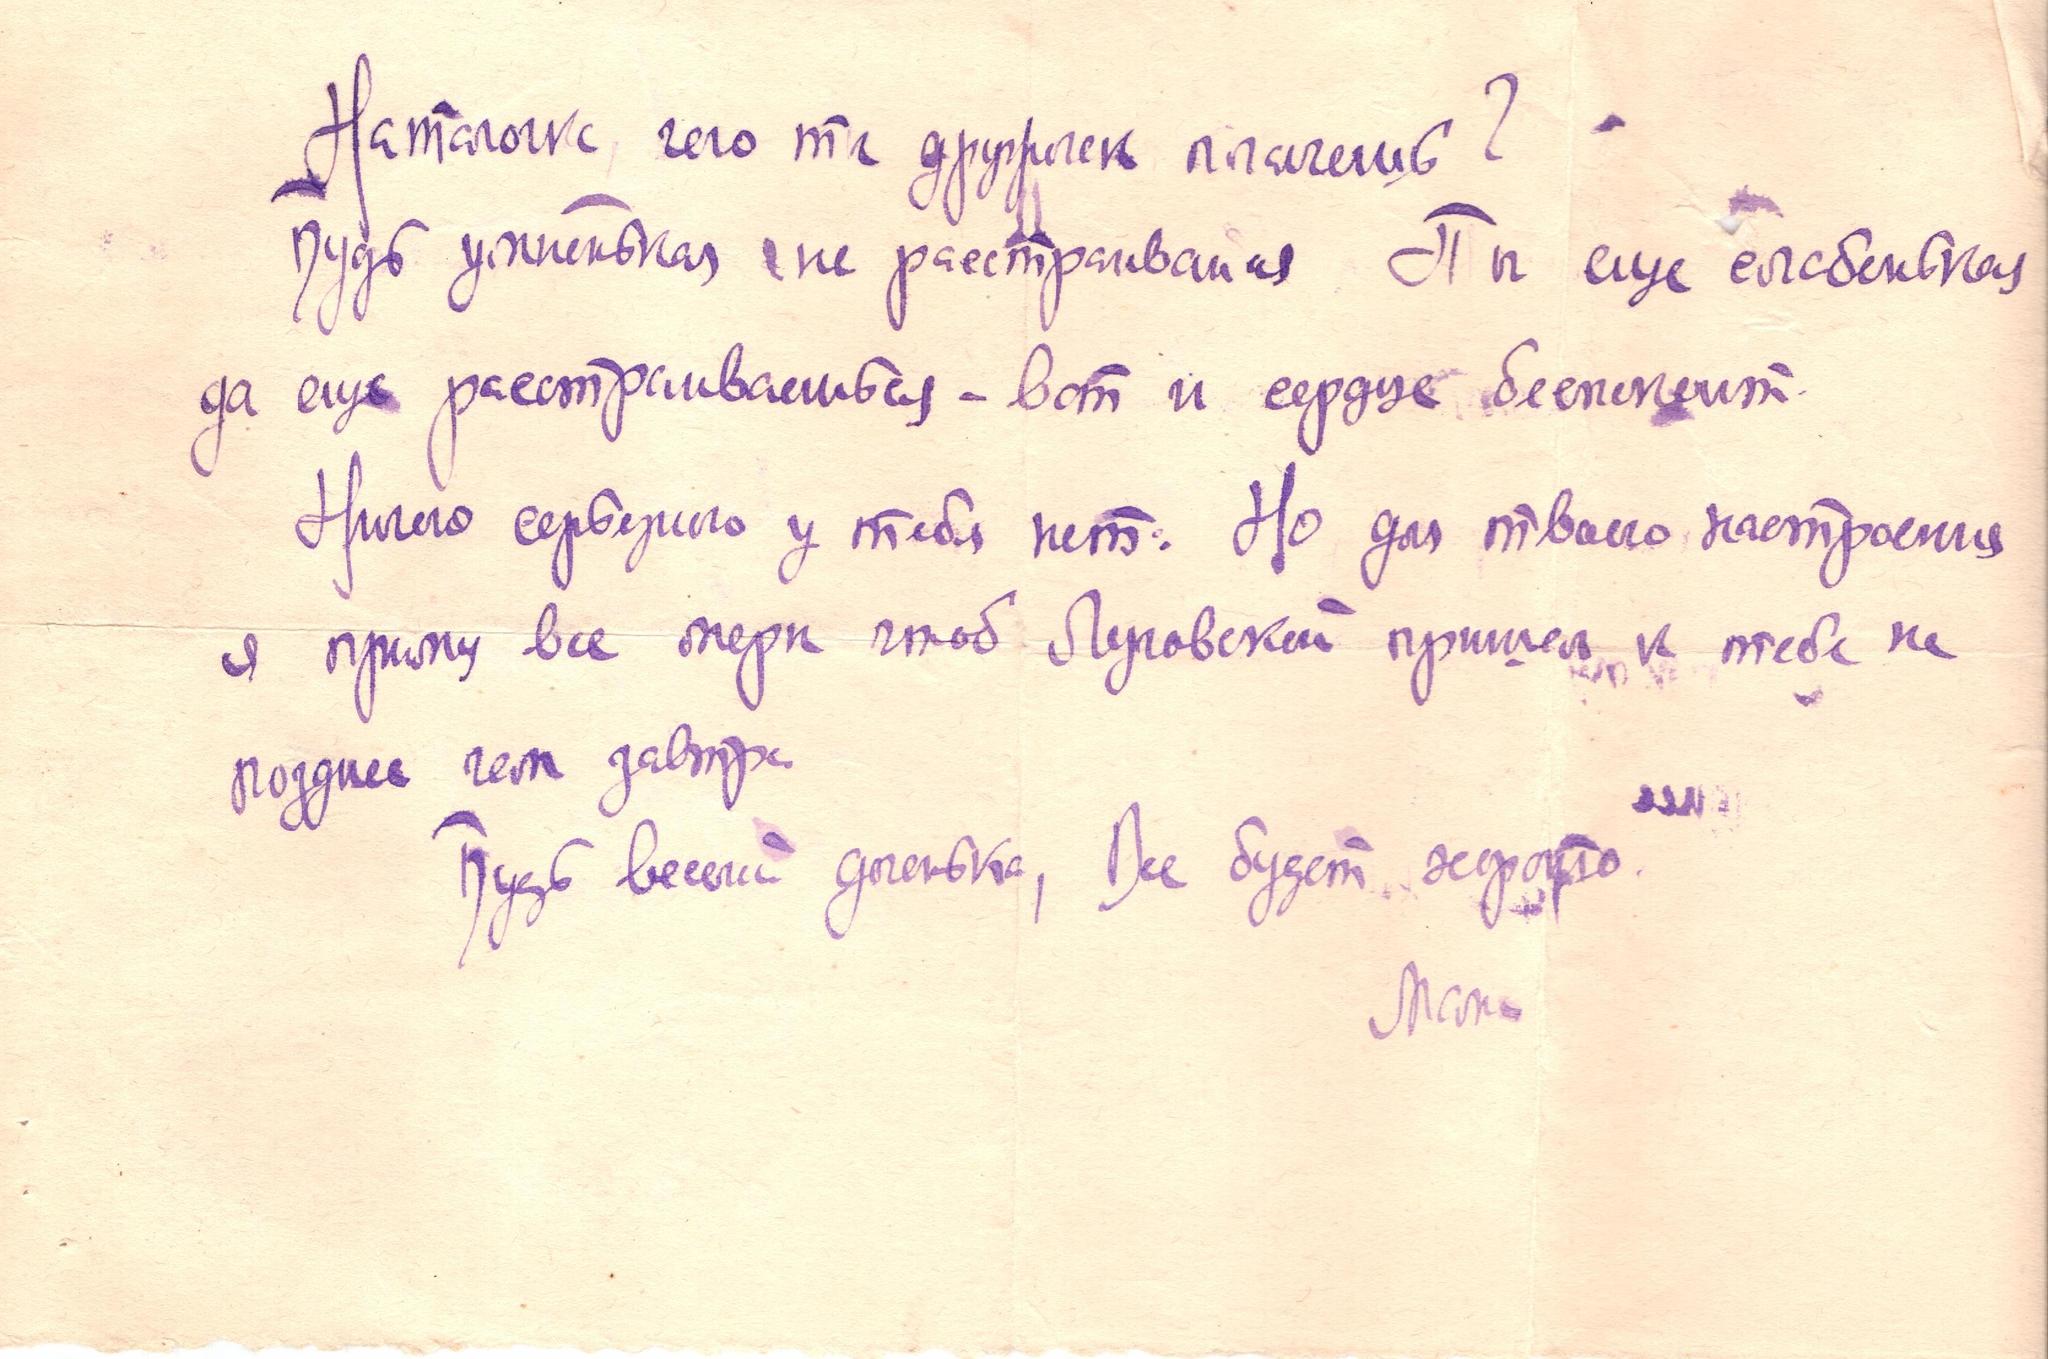 Наталочка, чего ты дружочек плачешь?
Будь умненькая не расстраивайся Ты еще слабенькая
да еще расстраиваешься - вот и сердце беспокоит.
Ничего серьезного у тебя нет. Но для твоего настроения
я приму все меры чтоб Луговской пришел к тебе не
позднее чем завтра
Будь веселой доченька, Все будет хорошо.
Мама